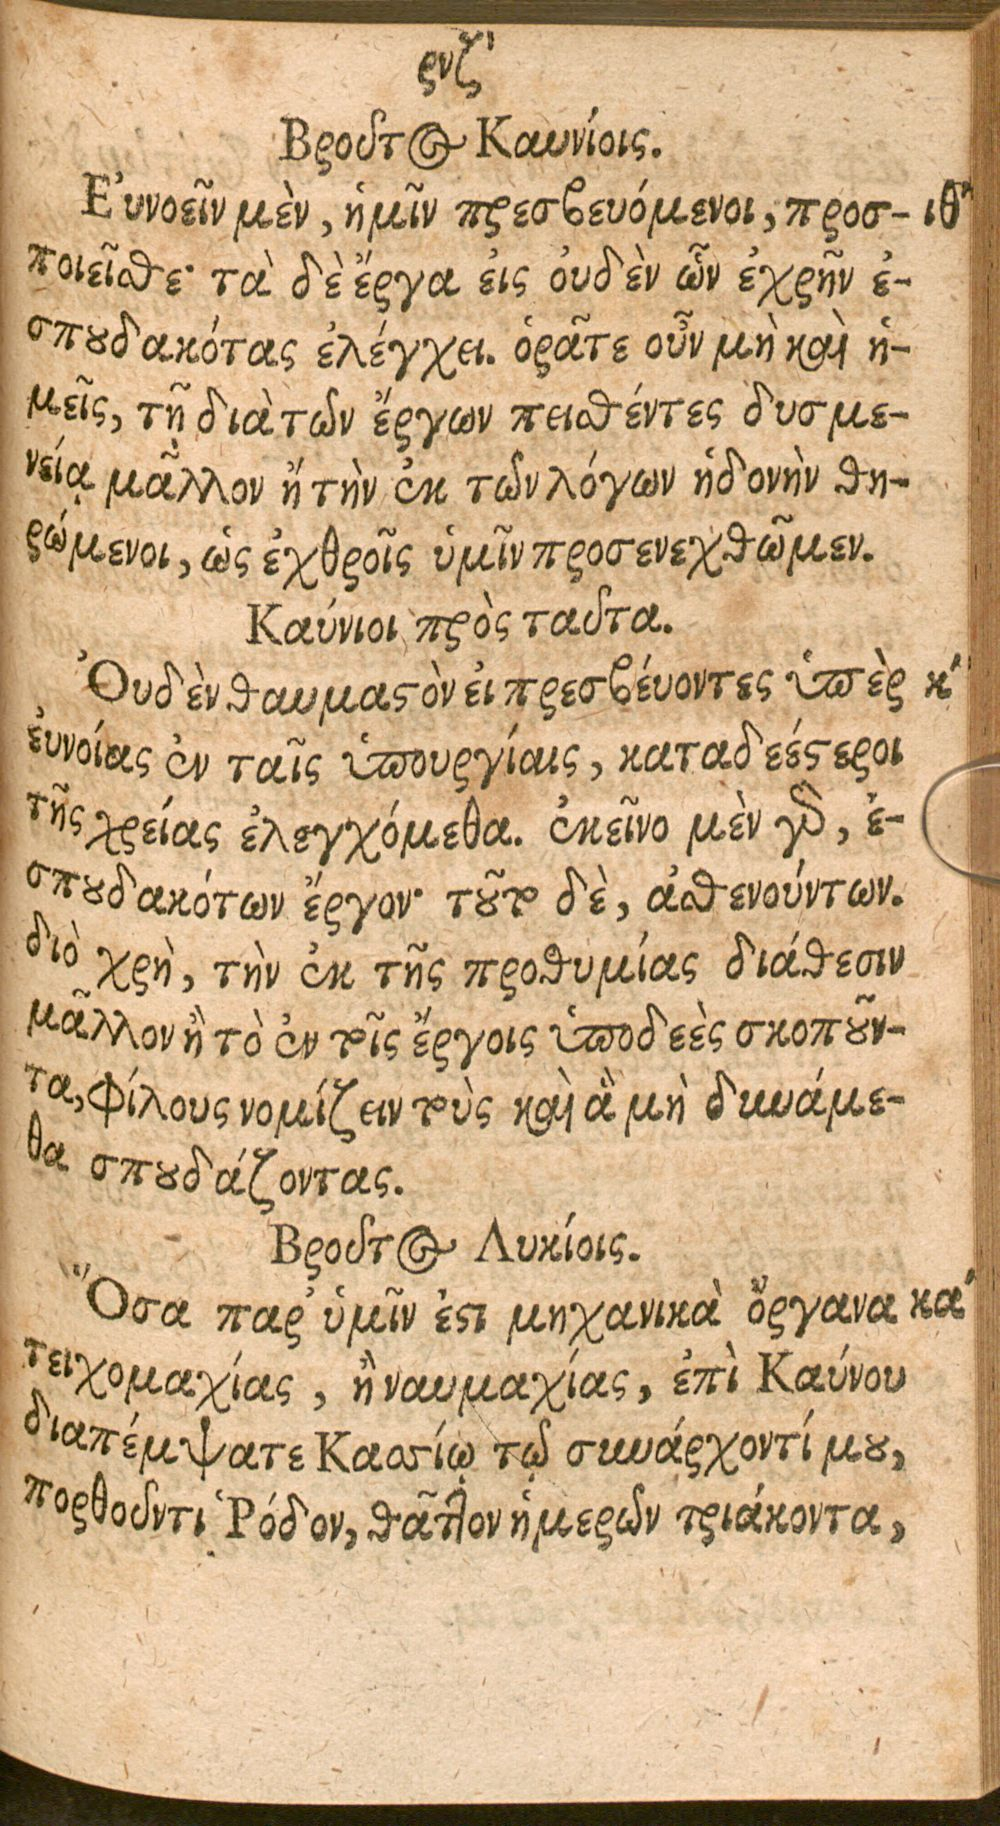 ρνζʹ
Βροῦτος Καυνίοις.
Εὐνοεῖν μὲν, ἡμῖν πρεσβευόμενοι, προσ- ιθʹ
ποιεῖσθε· τὰ δὲ ἔργα εἰς οὐδὲν ὧν ἐχρῆν ἐ-
σπουδακότας ἐλέγχει. ὁρᾶτε οὖν μὴ καὶ ἡ-
μεῖς, τῇ διὰ τῶν ἔργων πεισθέντες δυσμε-
νείᾳ μᾶλλον ἢ τὴν ἐκ τῶν λόγων ἡδονὴν θη-
ρώμενοι, ὡς ἐχθροῖς ὑμῖν προσενεχθῶμεν.
Καύνιοι πρὸς ταῦτα.
Οὐδὲν θαυμαστὸν εἰ πρεσβέυοντες ὑπὲρ κʹ
ἐυνοίας ἐν ταῖς ὑπουργίαις, καταδεέστεροι
τῆς χρείας ἐλεγχόμεθα. ἐκεῖνο μὲν γὰρ, ἐ-
σπουδακότων ἔργον· τοῦτο δὲ, ἀσθενούντων.
διὸ χρὴ, τὴν ἐκ τῆς προθυμίας διάθεσιν
μᾶλλον ἢ τὸ ἐν τοῖς ἔργοις ὑποδεὲς σκοποῦν-
τα, φίλους νομίζειν τοὺς καὶ ἃ μὴ δυνάμε-
θα σπουδάζοντας.
Βροῦτος Λυκίοις.
Ὅσα παρ' ὑμῖν ἐστι μηχανικὰ ὄργανα καʹ
τειχομαχίας, ἢ ναυμαχίας, ἐπὶ Καύνου
διαπέμψατε Κασσίῳ τῷ συνάρχοντί μου,
πορθοῦντι Ῥόδον, θᾶττον ἡμερῶν τριάκοντα,